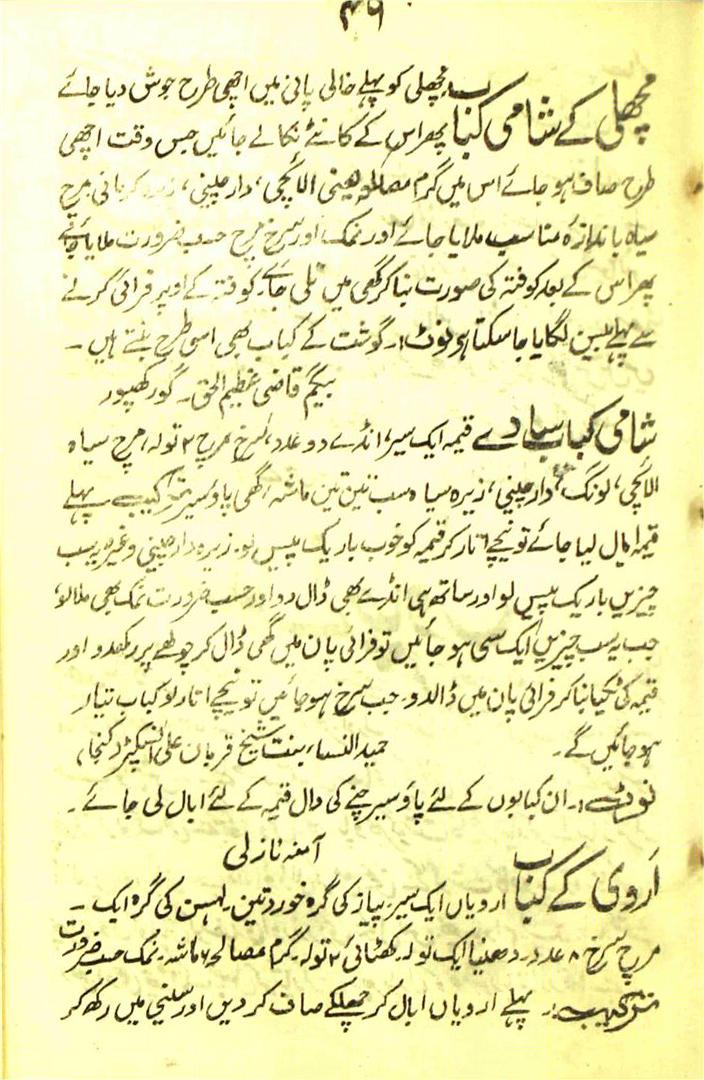 ۴۹
مچھلی کے شامی کباب مچھلی کو پہلے خالی پانی میں اچھی طرح جوش دیا جائے
پھر اس کے کانٹے نکالے جائیں جس وقت اچھی
طرح صاف ہو جائے اس میں گرم مصالحہ یعنی الائچی، دارچینی، زیرہ کرمانی مرچ
سیاہ باندازہ مناسب ملایا جائے اور نمک اور سرخ مرچ حسب ضرورت ملایا جائے
پھر اس کے بعد کوفتہ کی صورت بنا کر گھی میں تلی جائے۔ کوفتہ کے اوپر فرائی کرنے
سے پہلے بیسن لگایا جا سکتا ہو نوٹ:۔ گوشت کے کباب بھی اسی طرح بنتے ہیں۔
بیگم قاضی عظیم الحق۔ گورکھپور
شامی کباب سادے قیمہ ایک سیر، انڈے دو عدد، سرخ مرچ ۲ تولہ، مرچ سیاہ
الائچی، لونگ، دارچینی، زیرہ سیاہ سب تین تین ماشہ، گھی پاؤ سیر ترکیب پہلے
قیمہ ابال لیا جائے تو نیچے اتار کر قیمہ کو خوب باریک پیس لو۔ زیرہ دارچینی وغیرہ سب
چیزیں باریک پیس لو اور ساتھ ہی انڈے بھی ڈال دو اور حسب ضرورت نمک بھی ملا لو،
جب یہ سب چیزیں ایک سی ہو جائیں تو فرائی پان میں گھی ڈال کر چولھے پر رکھدو اور
قیمہ کی ٹکیا بنا کر فرائی پان میں ڈالدو۔ جب سرخ ہو جائیں تو نیچے اتار لو کباب تیار
ہو جائیں گے۔ حمید النساء، بنت شیخ قربان علی انسپکٹر
نوٹ:۔ ان کبابوں کے لئے پاؤ سیر چنے کی دال قیمہ کے لئے ابال لی جائے۔
آمنہ نازلی
اَروی کے کباب ارویاں ایک سیر۔ پیاز کی گرہ خورد تین۔ لہسن کی گرہ ایک۔
مرچ سرخ ۸ عدد۔ دھنیا ایک تولہ۔ کھٹائی ۲ تولہ۔ گرم مصالحہ ۶ ماشہ۔ نمک حسب ضرورت
ترکیب:۔ پہلے ارویاں ابال کر چھلکے صاف کر دیں اور سینی میں رکھ کر